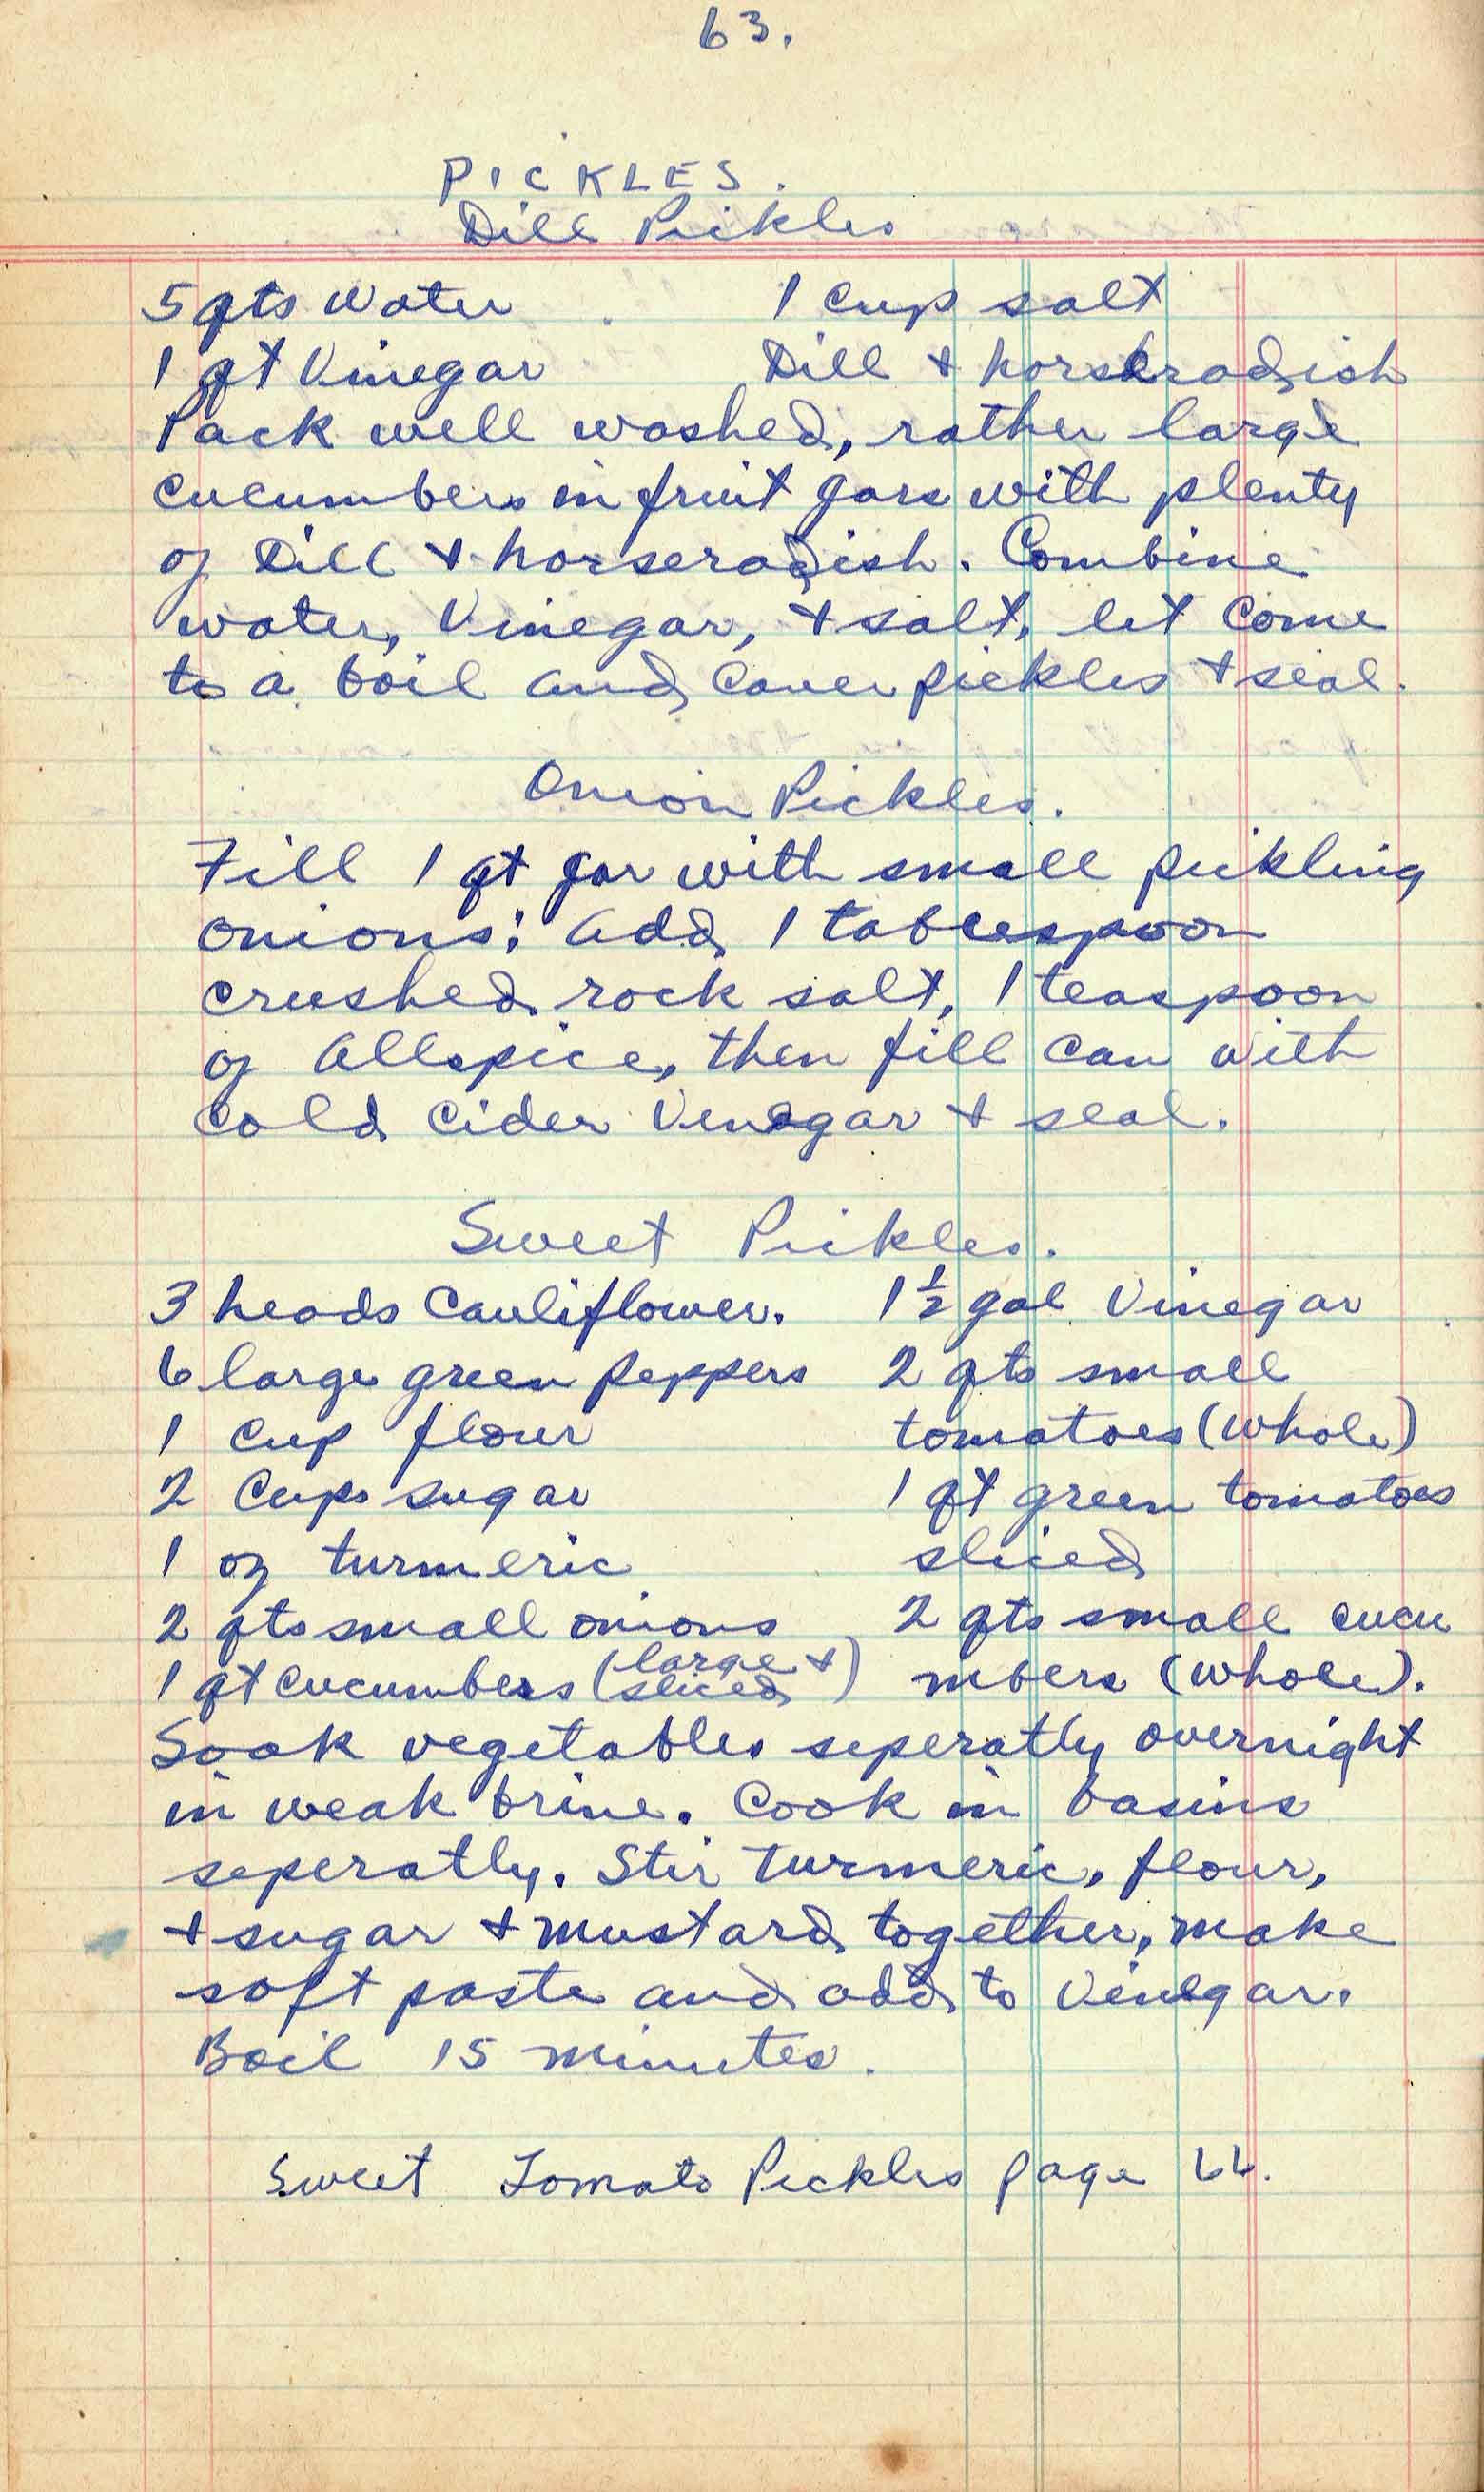 63.
PICKLES.
Dill Pickles
5 qts water 1 cup salt
1 qt Vinegar Dill + horseradish
Pack well washed, rather large
cucumbers in fruit jars with plenty
of Dill + horseradish. Combine
water, Vinegar, + salt, let come
to a boil and cover pickles + seal.
Onion Pickles.
Fill 1 qt jar with small pickling
onions; add 1 tablespoon
crushed rock salt, 1 teaspoon
of allspice, then fill can with
cold cider Vinegar + seal.
Sweet Pickles.
3 heads cauliflower. 1 1/2 gal Vinegar
6 large green peppers 2 qts small
1 cup flour tomatoes (whole)
2 cups sugar 1 qt green tomatoes
1 oz turmeric sliced
2 qts small onions 2 qts small cucu
1 qt cucumbers (large + sliced) mbers (whole).
Soak vegetables seperatly overnight
in weak brine. Cook in basins
seperatly. Stir turmeric, flour,
+ sugar + mustard together, make
soft paste and add to Vinegar.
Boil 15 minutes.
Sweet Tomato Pickles page 66.